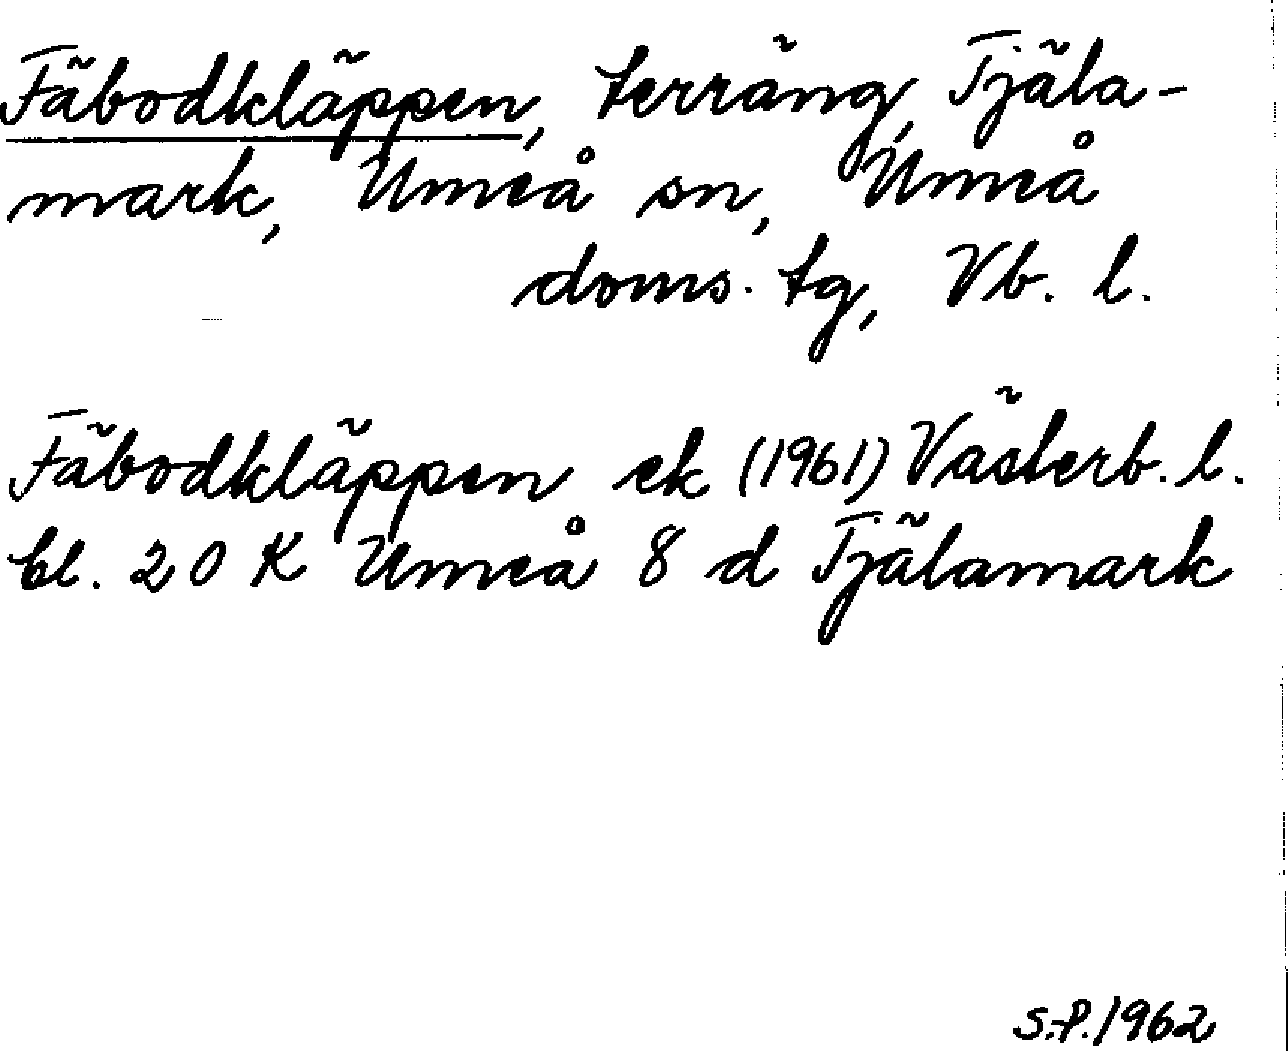 Fäbodkläppen, terräng, Tjäla-
mark, Umeå sn, Umeå
doms. tg, Vb. l.
Fäbodkläppen ek (1961) Västerb. l.
bl. 20 K Umeå 8 d Tjälamark
S.-P. 1962